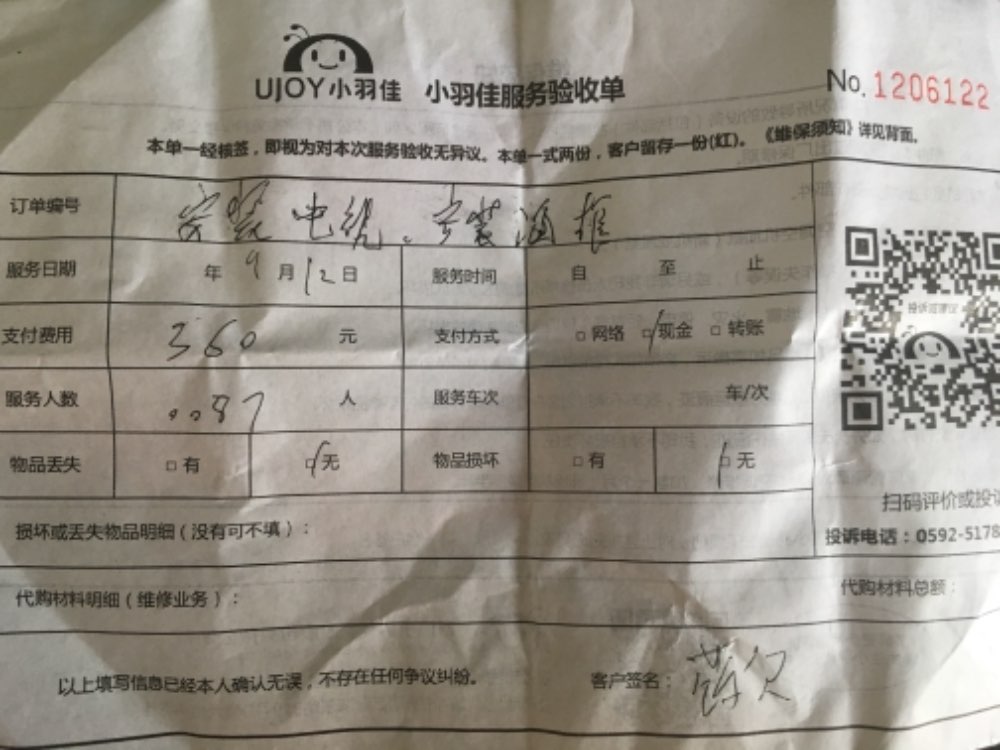 UJOY小羽佳 小羽佳服务验收单
No. 1206122
本单一经核签，即视为对本次服务验收无异议。本单一式两份，客户留存一份(红)。《维保须知》详见背面。
订单编号 安装电线、安装油
服务日期 年 9 月 12 日 服务时间 自 至 止
支付费用 360 元 支付方式 □ 网络 □ 现金 □ 转账
服务人数 0087 人 服务车次 车/次
物品丢失 □ 有 □ 无 物品损坏 □ 有 □ 无
投诉或建议
扫码评价或投诉
损坏或丢失物品明细（没有可不填）：
投诉电话：0592-5178
代购材料明细（维修业务）： 代购材料总额：
以上填写信息已经本人确认无误，不存在任何争议纠纷。 客户签名：